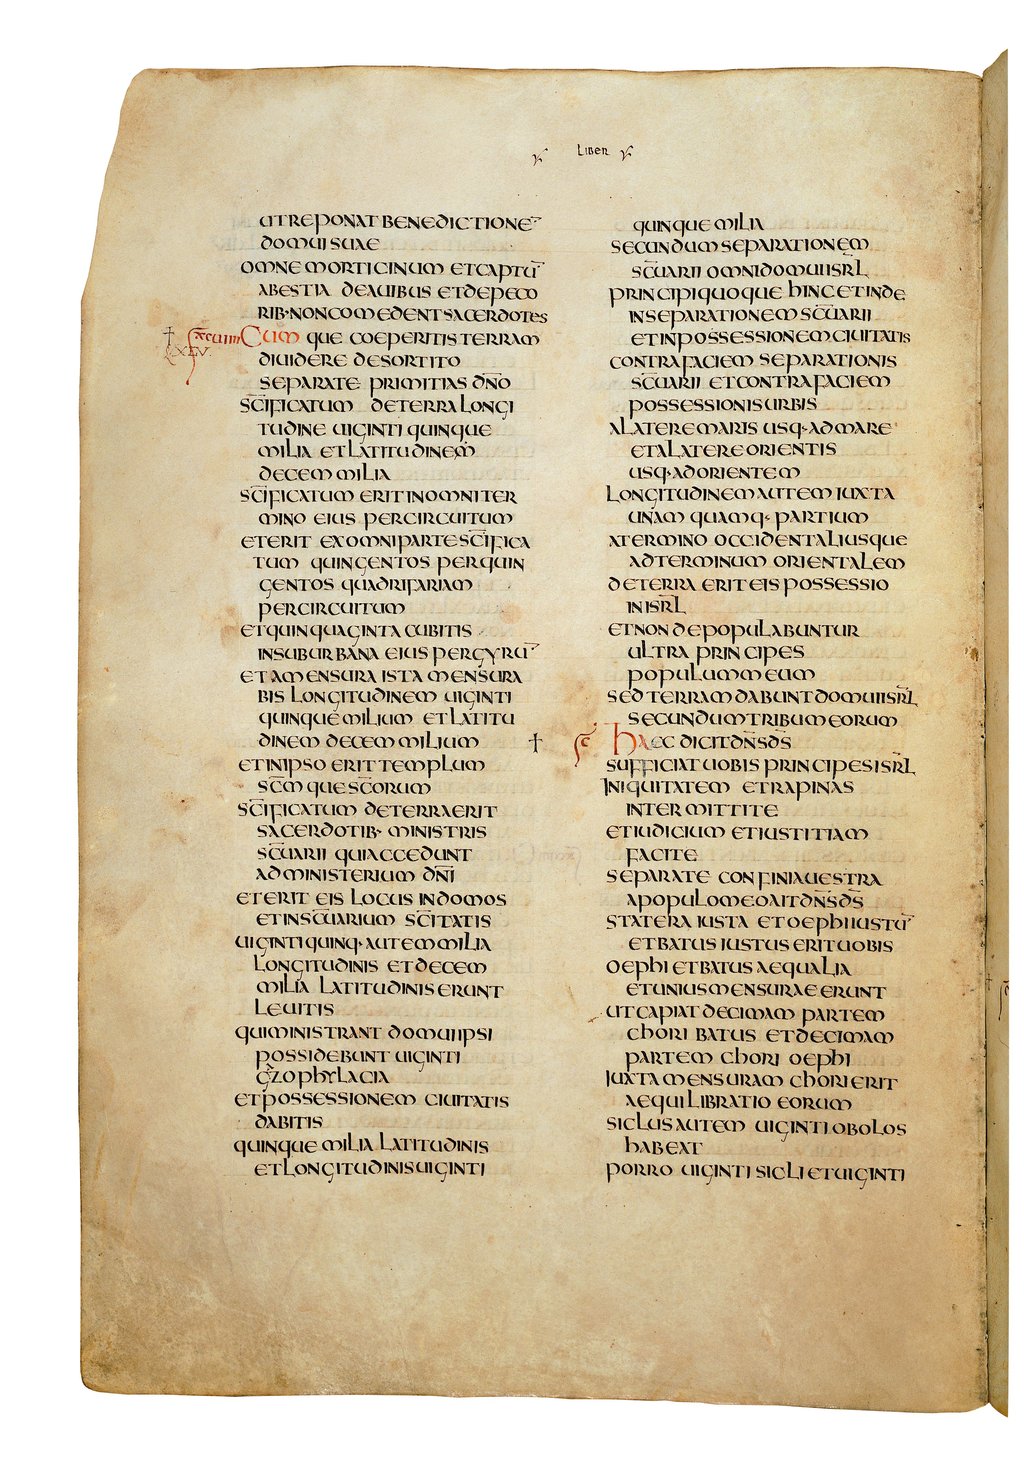 LIBER
UT REPONAT BENEDICTIONĒ
DOMUI SUAE
OMNE MORTICINUM ET CAPTŪ
A BESTIA DE AVIBUS ET DE PECO
RIB· NON COMEDENT SACERDOTES
XXVIIII CUM QUE COEPERITIS TERRAM
XLV
DIUIDERE DESORTITO
SEPARATE PRIMITIAS DN̄O
SC̄IFICATUM DE TERRA LONGI
TUDINE UIGINTI QUINQUE
MILIA ET LATITUDINEM
DECEM MILIA
SC̄IFICATUM ERIT IN OMNI TER
MINO EIUS PER CIRCUITUM
ET ERIT EX OMNI PARTE SC̄IFICA
TUM QUINGENTOS PER QUIN
GENTOS QUADRIFARIAM
PER CIRCUITUM
ET QUINQUAGINTA CUBITIS
IN SUBURBANA EIUS PER GYRŪ
ET A MENSURA ISTA MENSURA
BIS LONGITUDINEM UIGINTI
QUINQUE MILIUM ET LATITU
DINEM DECEM MILIUM
ET IN IPSO ERIT TEMPLUM
SC̄M QUE SC̄ORUM
SC̄IFICATUM DE TERRA ERIT
SACERDOTIB· MINISTRIS
SC̄UARII QUI ACCEDUNT
AD MINISTERIUM DN̄I
ET ERIT EIS LOCUS IN DOMOS
ET IN SC̄UARIUM SC̄ITATIS
UIGINTI QUINQ· AUTEM MILIA
LONGITUDINIS ET DECEM
MILIA LATITUDINIS ERUNT
LEUITIS
QUI MINISTRANT DOMUI IPSI
POSSIDEBUNT UIGINTI
GAZOPHYLACIA
ET POSSESSIONEM CIUITATIS
DABITIS
QUINQUE MILIA LATITUDINIS
ET LONGITUDINIS UIGINTI
QUINQUE MILIA
SECUNDUM SEPARATIONEM
SC̄UARII OMNI DOMUI ISRL̄
PRINCIPI QUOQUE HINC ET INDE
IN SEPARATIONEM SC̄UARII
ET IN POSSESSIONEM CIUITATIS
CONTRA FACIEM SEPARATIONIS
SC̄UARII ET CONTRA FACIEM
POSSESSIONIS URBIS
A LATERE MARIS USQ· AD MARE
ET A LATERE ORIENTIS
USQ· AD ORIENTEM
LONGITUDINEM AUTEM IUXTA
UNAM QUAMQ· PARTIUM
A TERMINO OCCIDENTALI USQUE
AD TERMINUM ORIENTALEM
DE TERRA ERIT EIS POSSESSIO
IN ISRL̄
ET NON DEPOPULABUNTUR
ULTRA PRINCIPES
POPULUM MEUM
SED TERRAM DABUNT DOMUI ISRL̄
SECUNDUM TRIBUM EORUM
HAEC DICIT DN̄S DS̄
SUFFICIAT UOBIS PRINCIPES ISRL̄
INIQUITATEM ET RAPINAS
INTERMITTITE
ET IUDICIUM ET IUSTITIAM
FACITE
SEPARATE CONFINIA UESTRA
A POPULO MEO AIT DN̄S DS̄
STATERA IUSTA ET OEPHI IUSTŪ
ET BATUS IUSTUS ERIT UOBIS
OEPHI ET BATUS AEQUALIA
ET UNIUS MENSURAE ERUNT
UT CAPIAT DECIMAM PARTEM
CHORI BATUS ET DECIMAM
PARTEM CHORI OEPHI
IUXTA MENSURAM CHORI ERIT
AEQUI LIBRATIO EORUM
SICLUS AUTEM UIGINTI OBOLOS
HABEAT
PORRO UIGINTI SICLI ET UIGINTI